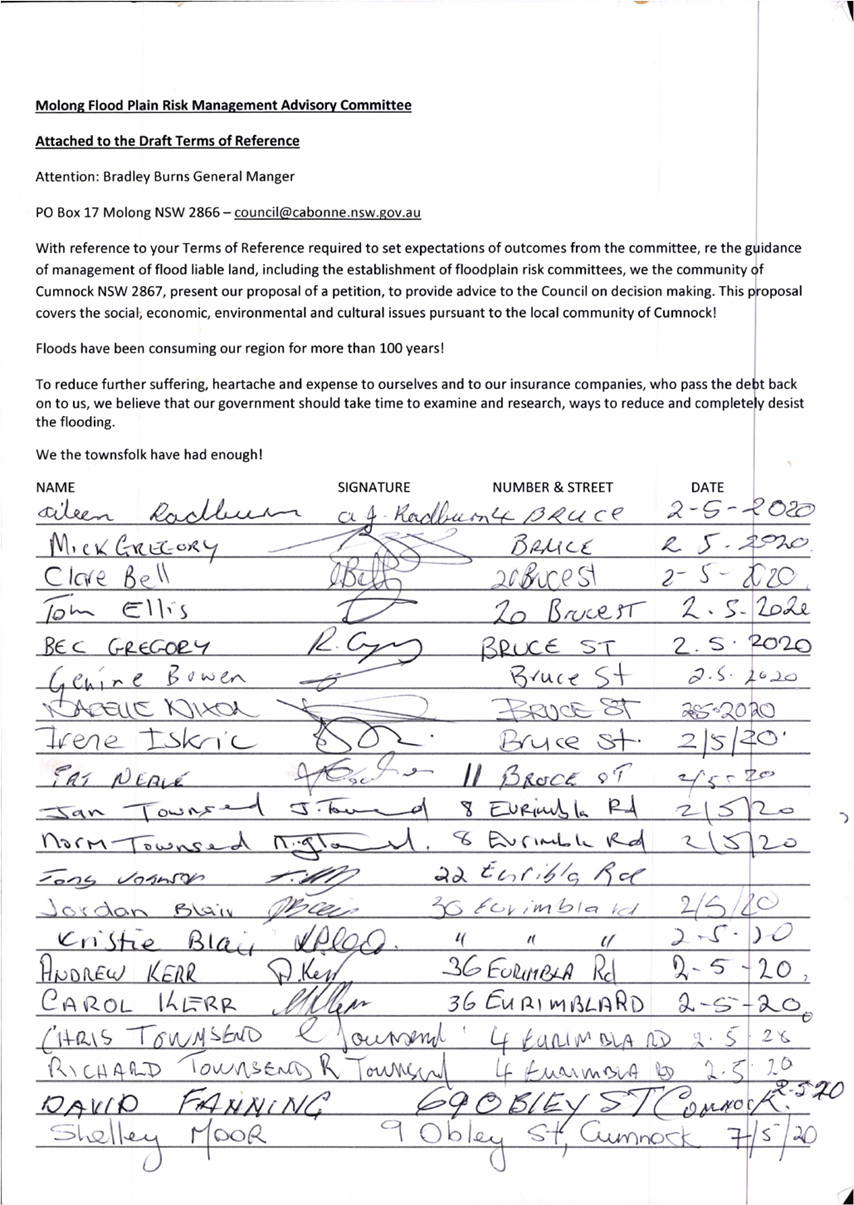 Molong Flood Plain Risk Management Advisory Committee
Attached to the Draft Terms of Reference
Attention: Bradley Burns General Manger
PO Box 17 Molong NSW 2866 – council@cabonne.nsw.gov.au
With reference to your Terms of Reference required to set expectations of outcomes from the committee, re the guidance
of management of flood liable land, including the establishment of floodplain risk committees, we the community of
Cumnock NSW 2867, present our proposal of a petition, to provide advice to the Council on decision making. This proposal
covers the social, economic, environmental and cultural issues pursuant to the local community of Cumnock!
Floods have been consuming our region for more than 100 years!
To reduce further suffering, heartache and expense to ourselves and to our insurance companies, who pass the debt back
on to us, we believe that our government should take time to examine and research, ways to reduce and completely desist
the flooding.
We the townsfolk have had enough!
NAME SIGNATURE NUMBER & STREET DATE
Aileen Radburn a J. Radburn 4 BRUCE 2-5-2020
MICK GREGORY BRUCE 2 5.2020.
Clare Bell CBell 20 Bruce St 2-5-2020
Tom Ellis 20 Bruce ST 2.5.2020
BEC GREGORY R. BRUCE ST 2.5.2020
Genine Bowen Bruce St 2.5.2020
NIXON BRUCE ST 2020
Irene Iskric Bruce St. 2/5/20
PAT NEALE 11 BRUCE ST 2/5-20
Jan Townsed J. 8 Eurimbla Rd 2/5/20
Norm Townsed 8 Eurimbla Rd 2/5/20
Tony Johnson 22 Euribla Rd
Jordan Blair 30 Eurimbla rd 2/5/20
Kristie Blair " " " 2-5-20
ANDREW KERR A. Kerr 36 EURIMBLA Rd 2-5-20,
CAROL KERR 36 EURIMBLA RD 2-5-20
CHRIS TOWNSEND C Townsend 4 EURIMBLA RD 2.5 20
RICHARD TOWNSEND R Townsend 4 EURIMBLA RD 2.5 20
DAVID FANNING 69 OBLEY ST CUMNOCK. 2-5 20
Shelley MOOR 9 Obley St, Cumnock 7/5/20